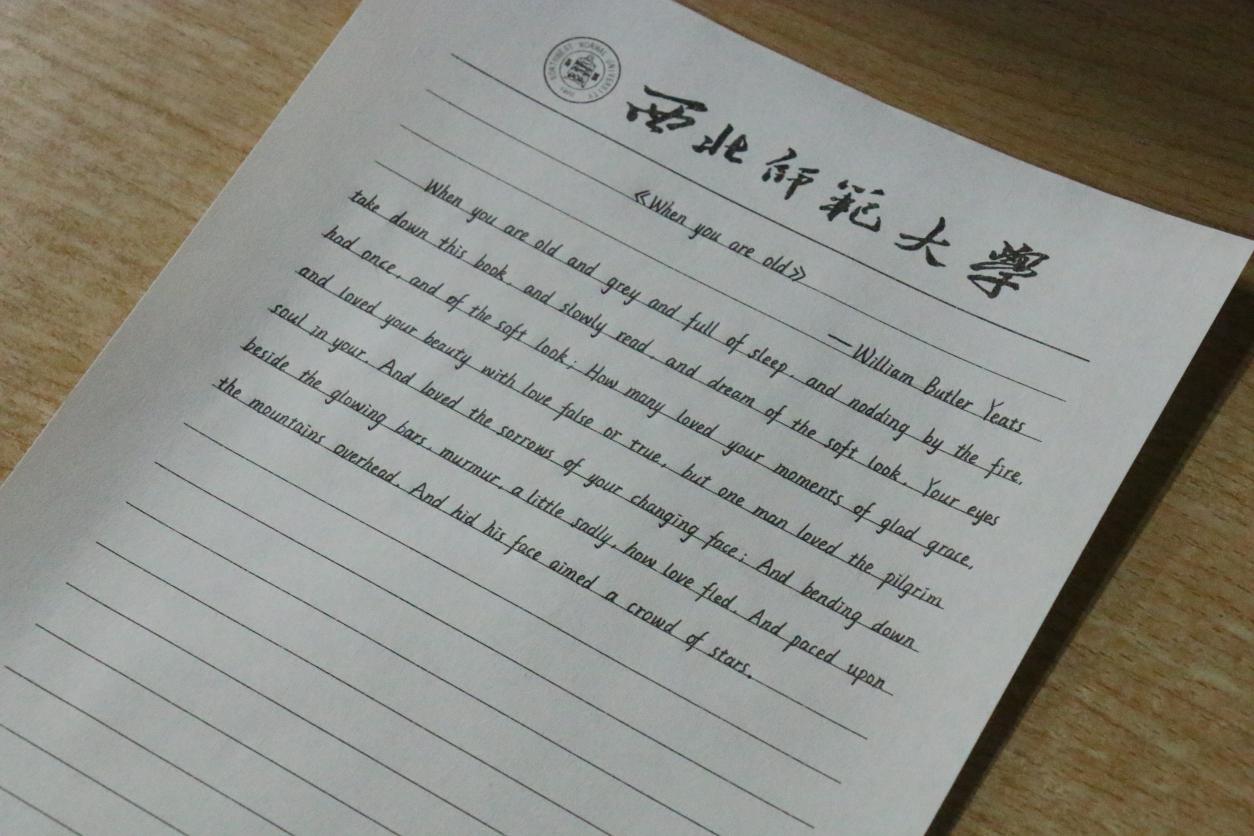 NORTHWEST NORMAL UNIVERSITY
西北师範大學
《When you are old》
—Willian Butler Yeats
When you are old and grey and full of sleep and nodding by the fire,
take down this book, and slowly read, and dream of the soft look. Your eyes
had once, and of the soft look; How many loved your moments of glad grace,
and loved your beauty with love false or true, but one man loved the pilgrim
soul in your. And loved the sorrows of your changing face; And bending down
beside the glowing bars, murmur, a little sadly, how love fled. And paced upon
the mountains overhead. And hid his face aimed a crowd of stars.